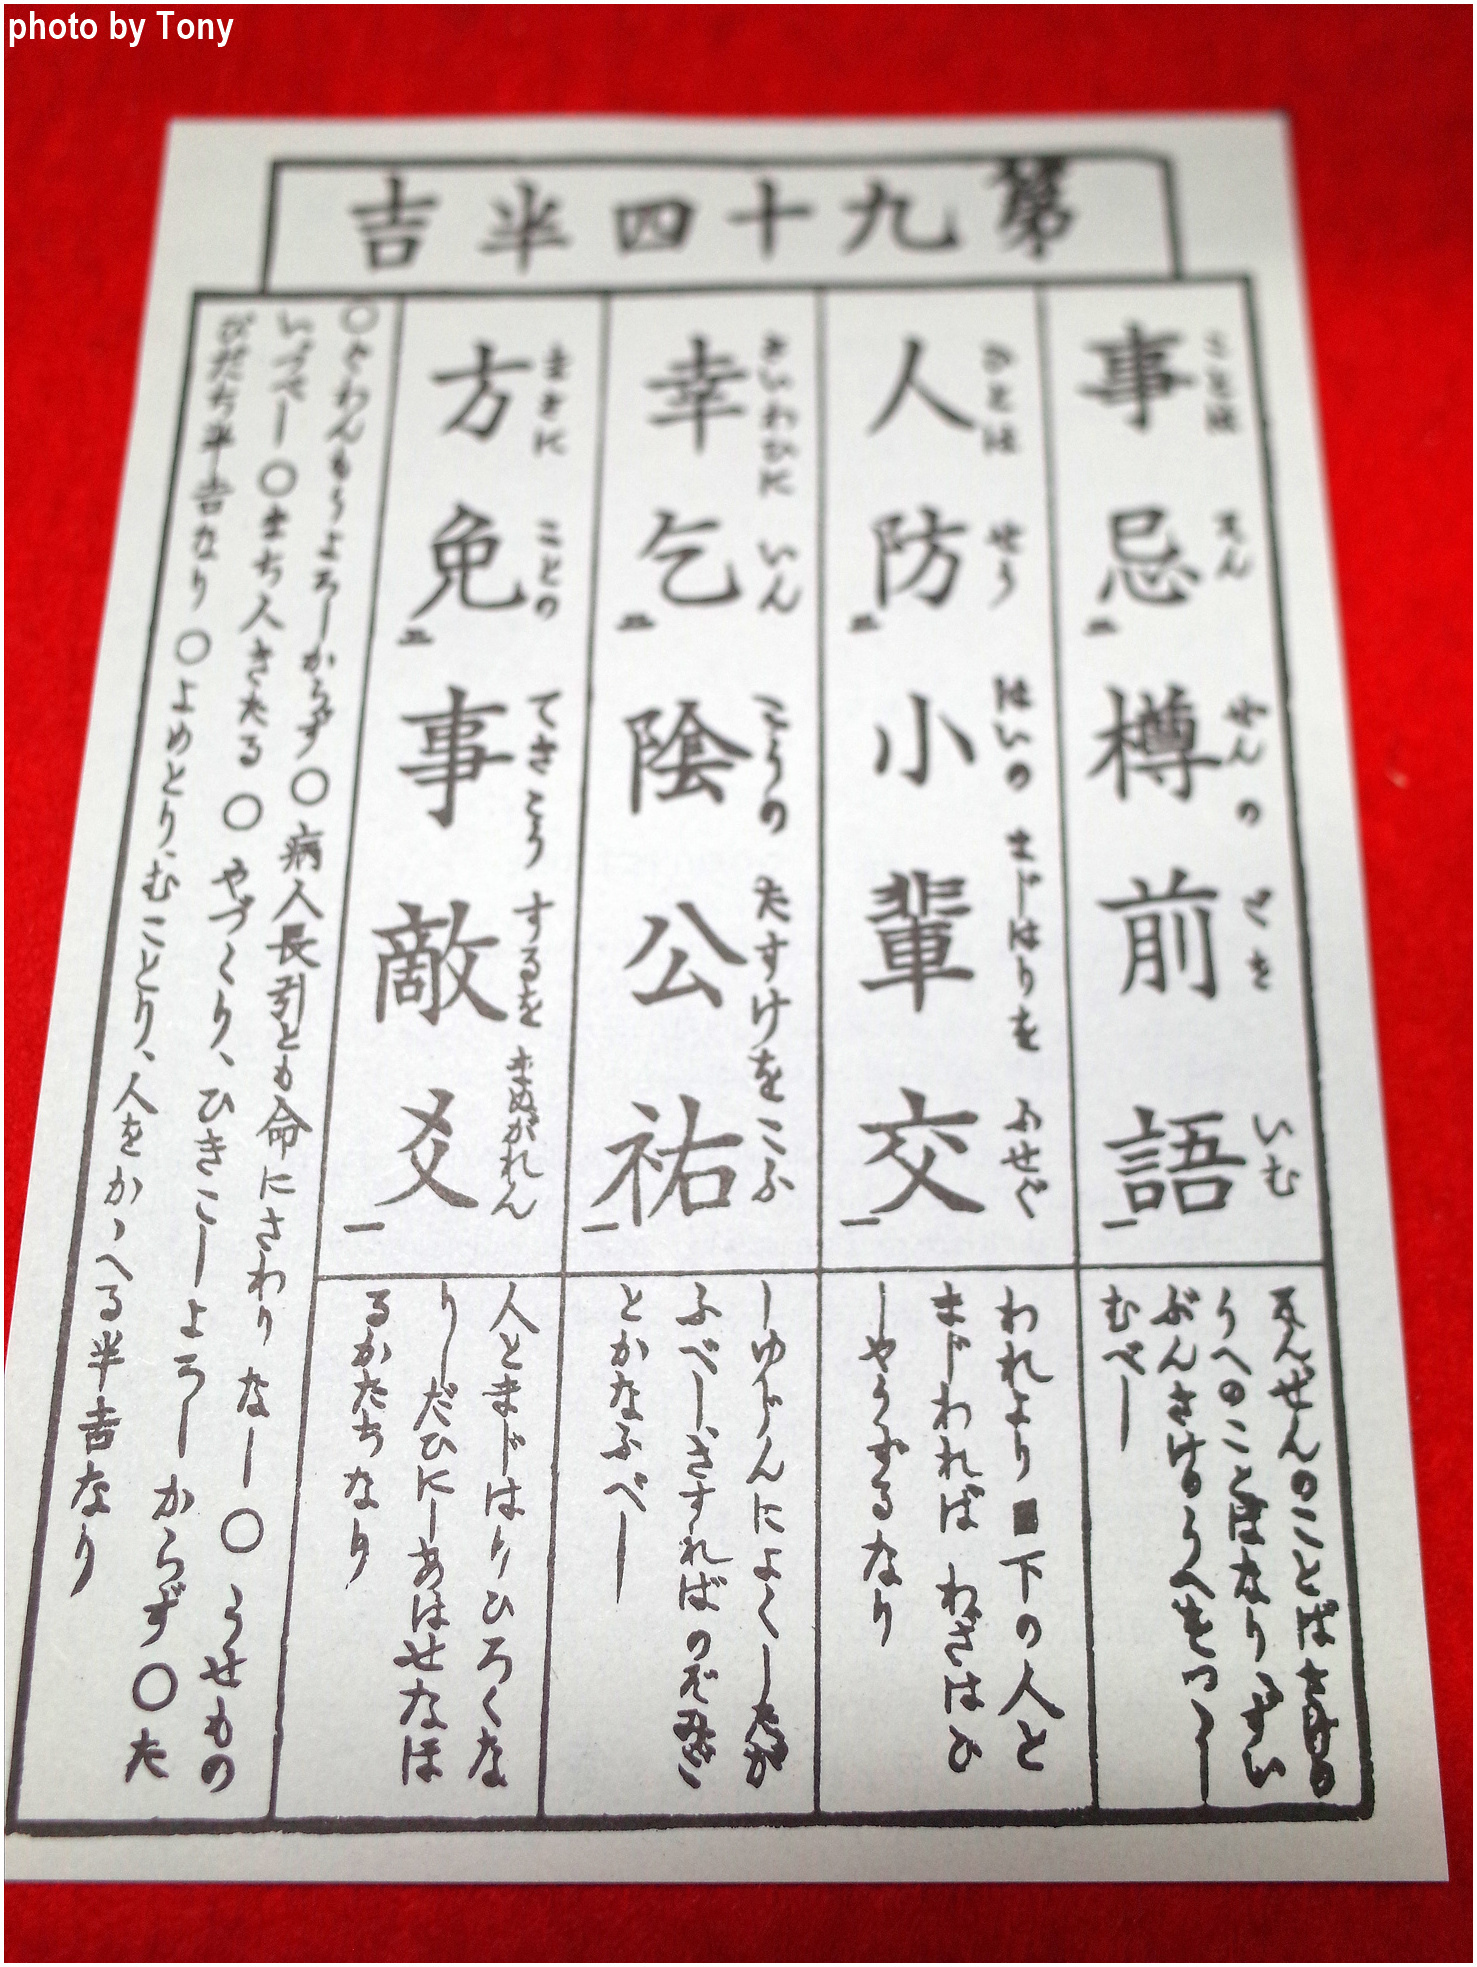 第九十四半吉
事忌二樽前語一
ことは そん ぜん の ごを いむ
そんぜんのことばはさけの
うへのことばなり ずい
ぶんさけのうへをつゝし
むべし
人防二小輩交一
ひとは せう はいの まじはりを ふせぐ
われより■下の人と
まじわれば わざはひ
しやうずるなり
幸乞二陰公祐一
さいわひに いん こうの たすけを こふ
しゆじんによくしたが
ふべし、さすればのぞみご
とかなふべし
方免二事敵爻一
まさに ことの てきこう するを まぬがれん
人とまじはりひろくな
りしだひにしあはせなほ
るかたちなり
○ぐわんもうよろしからず○病人長引とも命にさわりなし○うせもの
いづべし○まち人きたる○やづくり、ひきこしよろしからず○た
びだち半吉なり○よめとり、むことり、人をかゝへる半吉なり
photo by Tony